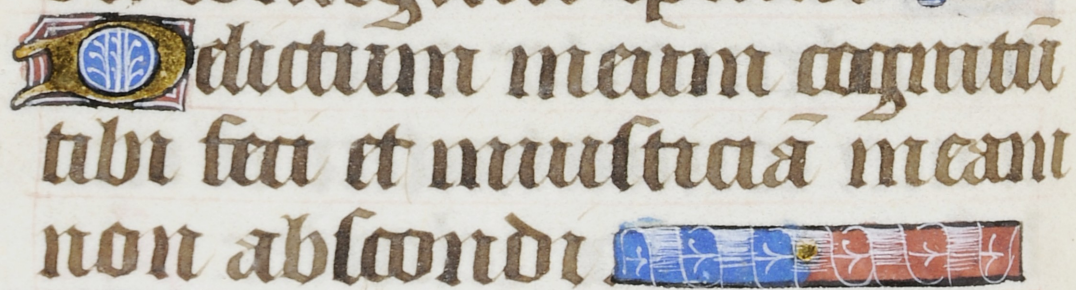 Delictum meum cognitū
tibi feci et iniusticiā meam
non abscondi